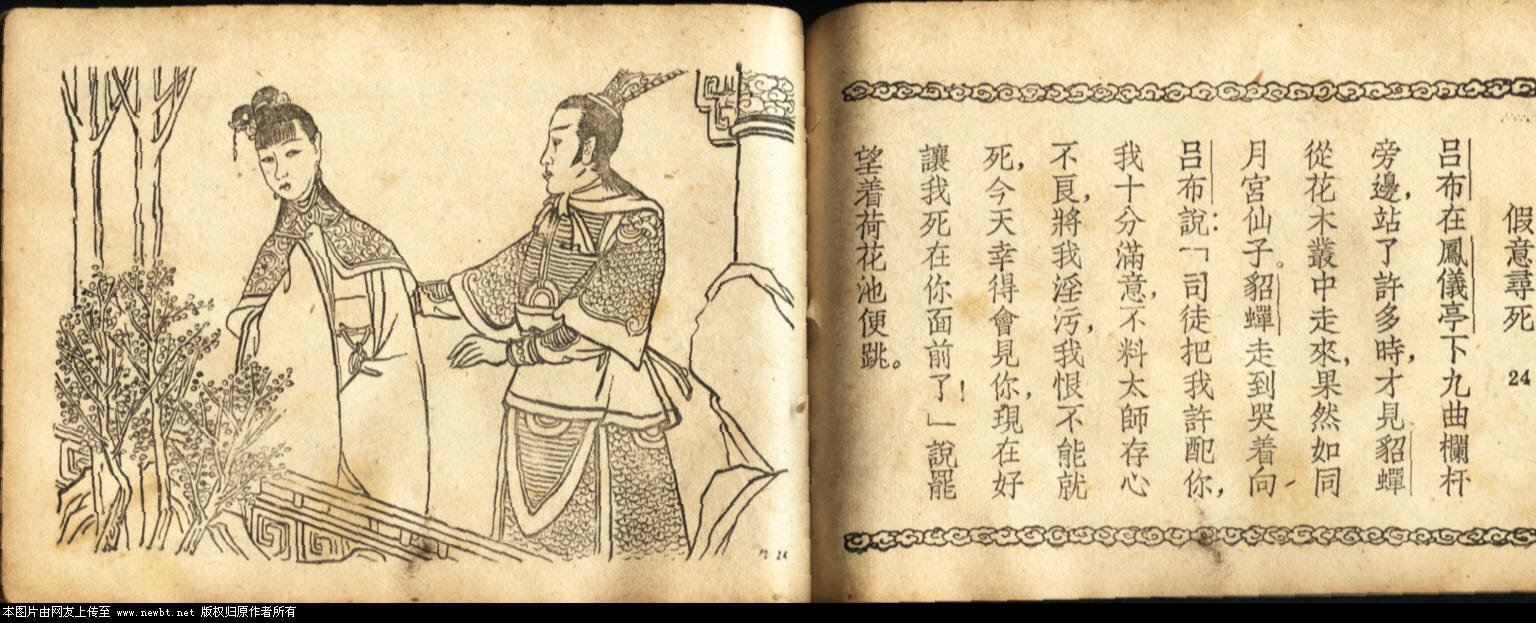 假意尋死 24
吕布在鳳儀亭下九曲欄杆
旁邊，站了許多時，才見貂蟬
從花木叢中走來，果然如同
月宮仙子。貂蟬走到哭着向
吕布說：「司徒把我許配你，
我十分滿意，不料太師存心
不良，將我淫污，我恨不能就
死，今天幸得會見你，現在好
讓我死在你面前了！」說罷
望着荷花池便跳。
24
本图片由网友上传至 www.newbt.net 版权归原作者所有